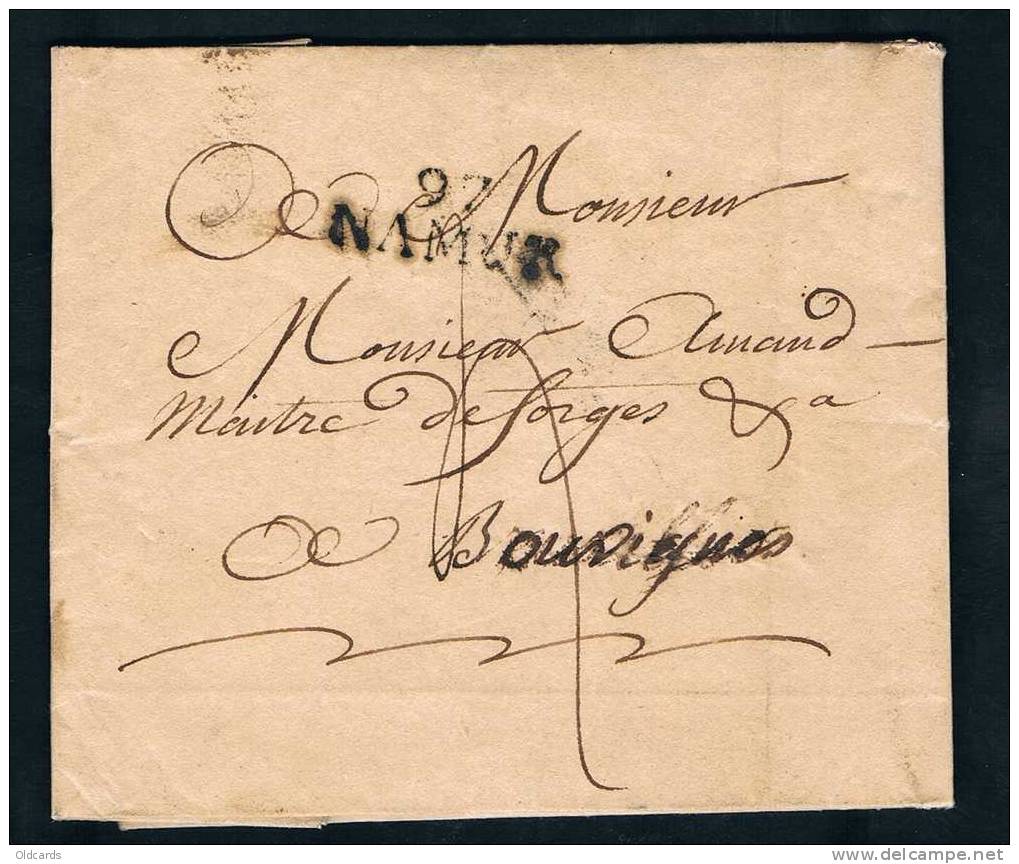 97
NAMUR
A Monsieur
Monsieur Amand
Maitre de forges &a
a Bouvignes
Oldcards
delcampe.net